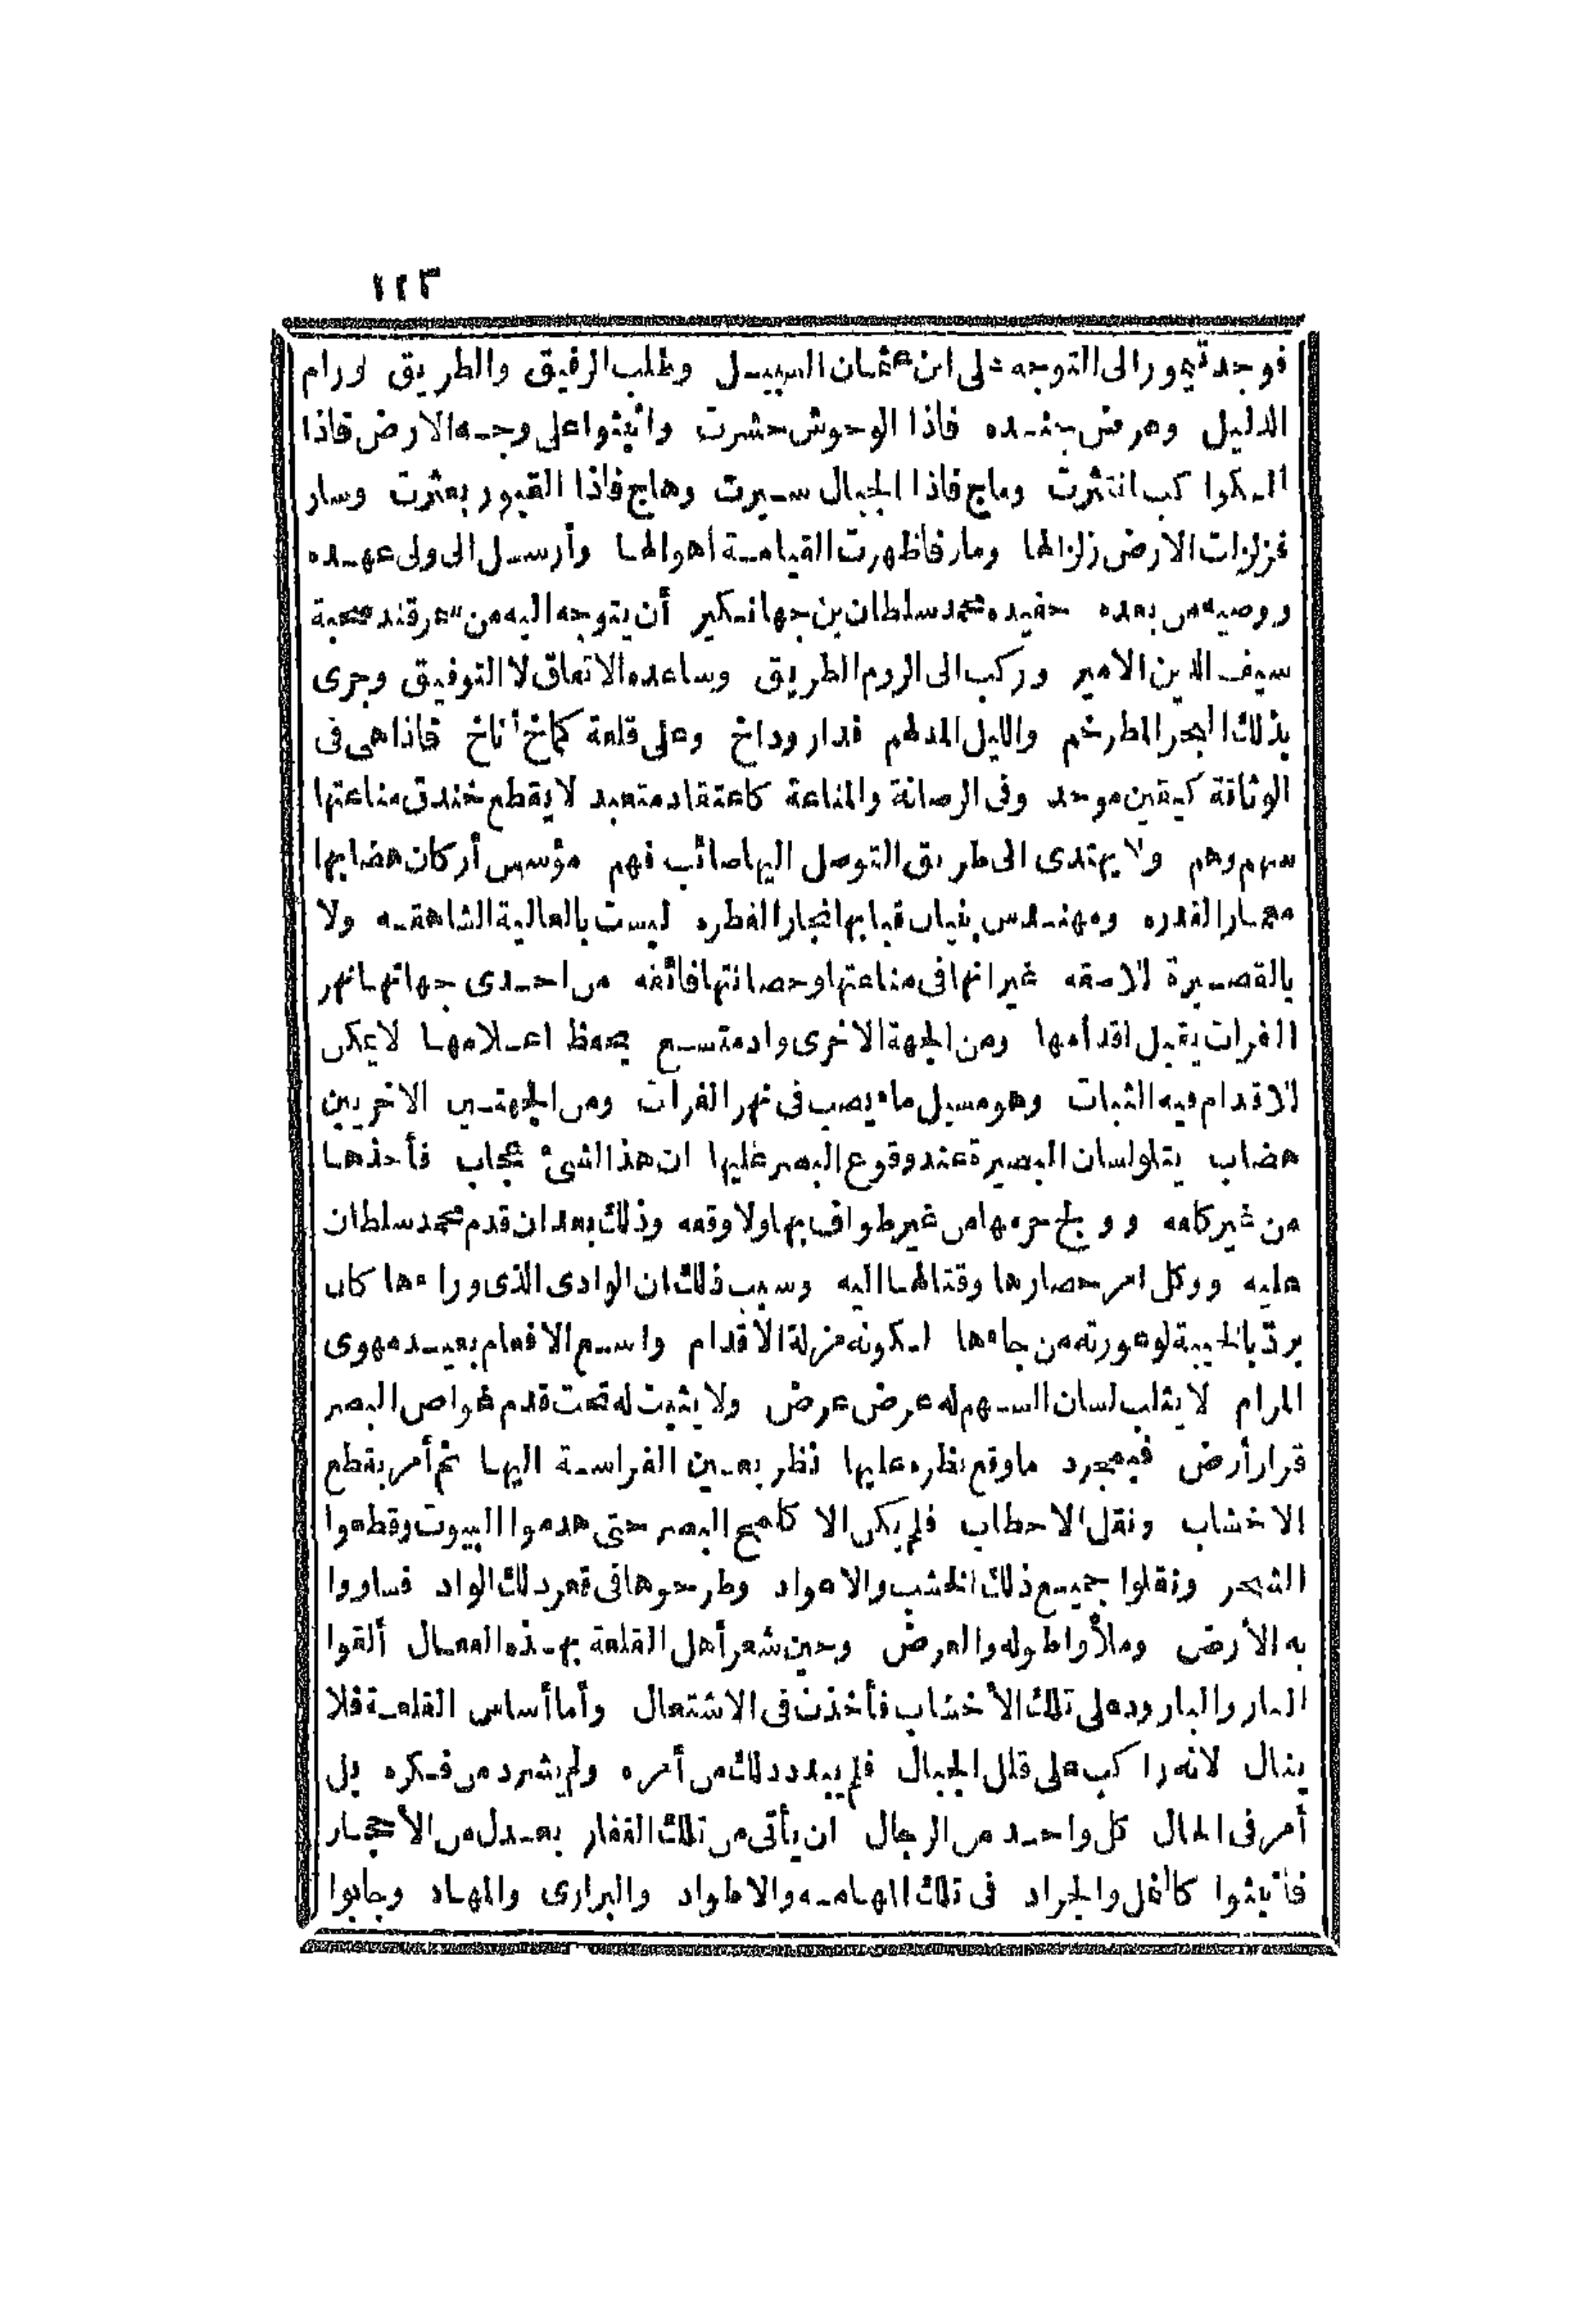 ١٢٣
فوجد تيمور الى التوجه على ابن عثمان السبيل وطلب الرفيق والطريق ورام
الدليل وعرض جنده فاذا الوحوش حشرت وانبثوا على وجه الارض فاذا
الكواكب انتثرت وماج فاذا الجبال سيرت وهاج فاذا القبور بعثرت وسار
فزلزلت الارض زلزالها ومار فاظهرت القيامة اهوالها وأرسل الى ولى عهده
ووصيه من بعده حفيده محمد سلطان بن جهانكير أن يتوجه اليه من سمرقند صحبة
سيف الدين الامير وركب الى الروم الطريق وساعده الاتفاق لا التوفيق وجرى
بذلك البحر المطرخم والليل المدلهم فدار وداخ وعلى قلعة كماخ أناخ فاذا هى فى
الوثاقة كيقين موحد وفى الرصانة والمناعة كاعتقاد متعبد لا يقطع خندق مناعتها
سهم وهم ولا يهتدى الى طريق التوصل اليها صائب فهم مؤسس أركان هضابها
معمار القدره ومهندس بنيان قبابها نجار الفطره ليست بالعالية الشاهقه ولا
بالقصيرة اللاصقه غير انها فى مناعتها وحصانتها فائقه من احدى جهاتها نهر
الفرات يقبل اقدامها ومن الجهة الاخرى واد متسع يحفظ اعلامها لا يمكن
للاقدام فيه الثبات وهو مسيل ماء يصب فى نهر الفرات ومن الجهتين الاخريين
هضاب يتلو لسان البصيرة عند وقوع البصر عليها ان هذا الشئ عجاب فأخذها
من غير كلفه وولج حرمها من غير طواف بها ولا وقفه وذلك بعد ان قدم محمد سلطان
عليه ووكل امر حصارها وقتالها اليه وسبب ذلك ان الوادى الذى وراءها كان
يردّ بالخيبة لوعورته من جاءها لكونه مزلة الاقدام واسع الافعام بعيد مهوى
المرام لا يثلب لسان السهم له عرض عرض ولا يثبت له تحت قدم غواص البصر
قرار أرض فبمجرد ما وقع نظره عليها نظر بعين الفراسة اليها ثم أمر بقطع
الاخشاب ونقل الاحطاب فلم يكن الا كلمح البصر حتى هدموا البيوت وقطعوا
الشجر ونقلوا جميع ذلك الخشب والاعواد وطرحوها فى قعر ذلك الواد فساووا
به الارض وملأوا طوله والعرض وحين شعر أهل القلعة بهذه الفعال ألقوا
النار والبارود على تلك الأخشاب فأخذت فى الاشتعال وأما أساس القلعة فلا
ينال لانه راكب على قلل الجبال فلم يبدد ذلك من أمره ولم يشرد من فكره بل
أمر فى الحال كل واحد من الرجال ان يأتى من تلك القفار بعدل من الأحجار
فانبثوا كالنمل والجراد فى تلك المهامه والاطواد والبرارى والمهاد وجابوا